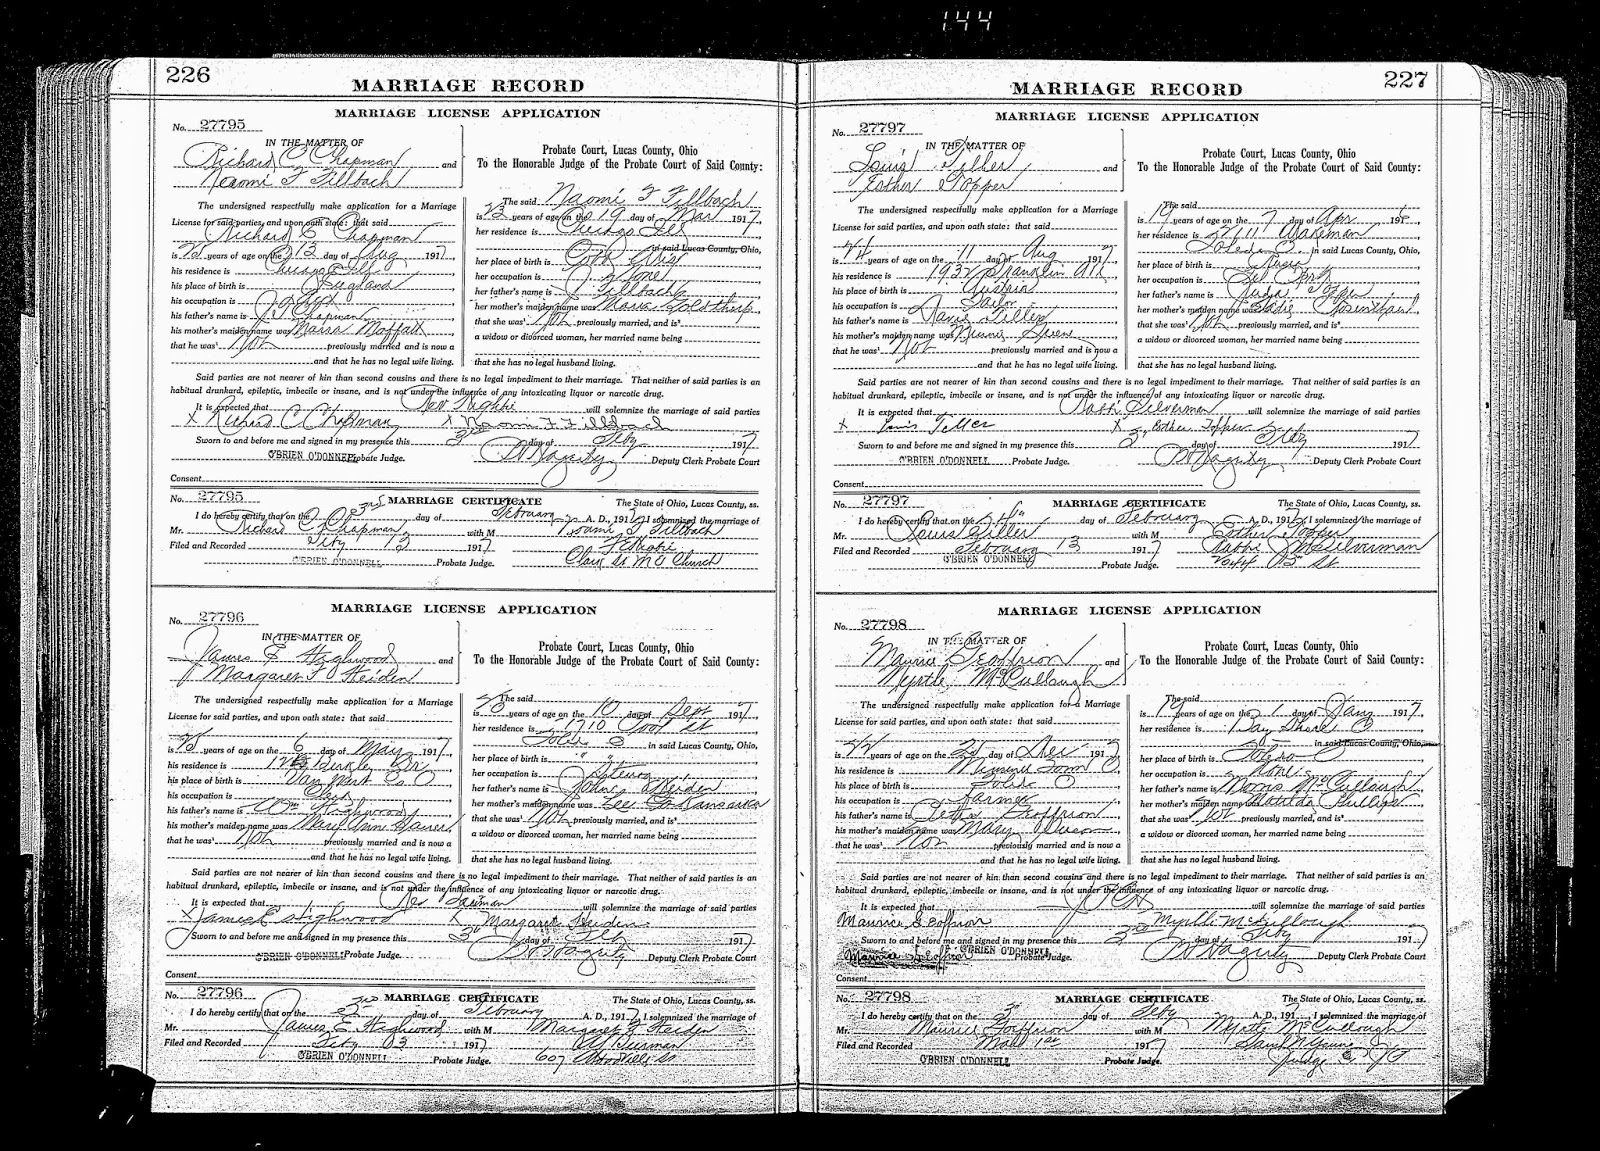 144
226
MARRIAGE RECORD
MARRIAGE LICENSE APPLICATION
No. 27795
IN THE MATTER OF
Richard C Chapman and
Naomi F Fillbach
Probate Court, Lucas County, Ohio
To the Honorable Judge of the Probate Court of Said County:
The undersigned respectfully make application for a Marriage
License for said parties, and upon oath state: that said
Richard C Chapman
is years of age on the 13 day of Aug 1917,
his residence is Chicago Ill
his place of birth is England
his occupation is
his father's name is J T Chapman
his mother's maiden name was Maria Moffatt
that he was Not previously married and is now a
and that he has no legal wife living.
The said Naomi F Fillbach
is years of age on the 19 day of Mar 1917,
her residence is Chicago Ill
in said Lucas County, Ohio,
her place of birth is Ohio
her occupation is None
her father's name is Fillbach
her mother's maiden name was
that she was Not previously married, and is
a widow or divorced woman, her married name being
that she has no legal husband living.
Said parties are not nearer of kin than second cousins and there is no legal impediment to their marriage. That neither of said parties is an
habitual drunkard, epileptic, imbecile or insane, and is not under the influence of any intoxicating liquor or narcotic drug.
It is expected that Rev will solemnize the marriage of said parties
X Richard C Chapman X Naomi F Fillbach
Sworn to and before me and signed in my presence this 3rd day of Feby 1917
O'BRIEN O'DONNELL Probate Judge. Deputy Clerk Probate Court
Consent
No. 27795 MARRIAGE CERTIFICATE The State of Ohio, Lucas County, ss.
I do hereby certify that on the 3rd day of February A. D., 1917 I solemnized the marriage of
Mr. Richard C Chapman with M Naomi F Fillbach
Filed and Recorded Feby 13 1917
O'BRIEN O'DONNELL Probate Judge. St M E Church
MARRIAGE LICENSE APPLICATION
No. 27796
IN THE MATTER OF
James E Highwood and
Margaret F Heiden
Probate Court, Lucas County, Ohio
To the Honorable Judge of the Probate Court of Said County:
The undersigned respectfully make application for a Marriage
License for said parties, and upon oath state: that said
is 25 years of age on the 6 day of May 1917,
his residence is
his place of birth is Van Wert Co O
his occupation is
his father's name is Wm Highwood
his mother's maiden name was Mary Ann
that he was Not previously married and is now a
and that he has no legal wife living.
The said
is years of age on the 10 day of Sept 1917,
her residence is 1710
in said Lucas County, Ohio,
her place of birth is "
her occupation is Steno
her father's name is John Heiden
her mother's maiden name was
that she was Not previously married, and is
a widow or divorced woman, her married name being
that she has no legal husband living.
Said parties are not nearer of kin than second cousins and there is no legal impediment to their marriage. That neither of said parties is an
habitual drunkard, epileptic, imbecile or insane, and is not under the influence of any intoxicating liquor or narcotic drug.
It is expected that Rev will solemnize the marriage of said parties
X James E Highwood X Margaret Heiden
Sworn to and before me and signed in my presence this 3rd day of Feby 1917
O'BRIEN O'DONNELL Probate Judge. Deputy Clerk Probate Court
Consent
No. 27796 MARRIAGE CERTIFICATE The State of Ohio, Lucas County, ss.
I do hereby certify that on the day of February A. D., 191 I solemnized the marriage of
Mr. James E Highwood with M Margaret F Heiden
Filed and Recorded Feby 3 1917
O'BRIEN O'DONNELL Probate Judge. 607 St
227
MARRIAGE RECORD
MARRIAGE LICENSE APPLICATION
No. 27797
IN THE MATTER OF
Louis Teller and
Esther Topper
Probate Court, Lucas County, Ohio
To the Honorable Judge of the Probate Court of Said County:
The undersigned respectfully make application for a Marriage
License for said parties, and upon oath state: that said
is years of age on the 11 day of Aug 191
his residence is Franklin
his place of birth is Austria
his occupation is Tailor
his father's name is Teller
his mother's maiden name was Minnie
that he was Not previously married and is now a
and that he has no legal wife living.
The said
is 19 years of age on the 7 day of Apr 191
her residence is Wakeman
Toledo O. in said Lucas County, Ohio,
her place of birth is Russia
her occupation is
her father's name is Topper
her mother's maiden name was
that she was Not previously married, and is
a widow or divorced woman, her married name being
that she has no legal husband living.
Said parties are not nearer of kin than second cousins and there is no legal impediment to their marriage. That neither of said parties is an
habitual drunkard, epileptic, imbecile or insane, and is not under the influence of any intoxicating liquor or narcotic drug.
It is expected that Rabbi Silverman will solemnize the marriage of said parties
X Louis Teller X Esther Topper
Sworn to and before me and signed in my presence this 3" day of Feby 1917
O'BRIEN O'DONNELL Probate Judge. Deputy Clerk Probate Court
Consent
No. 27797 MARRIAGE CERTIFICATE The State of Ohio, Lucas County, ss.
I do hereby certify that on the day of February A. D., 191 I solemnized the marriage of
Mr. Louis Teller with M Esther Topper
Filed and Recorded February 13 1917 Rabbi Silverman
O'BRIEN O'DONNELL Probate Judge. St
MARRIAGE LICENSE APPLICATION
No. 27798
IN THE MATTER OF
Maurice Geoffrion and
Myrtle McCullough
Probate Court, Lucas County, Ohio
To the Honorable Judge of the Probate Court of Said County:
The undersigned respectfully make application for a Marriage
License for said parties, and upon oath state: that said
is years of age on the day of Dec 191
his residence is O
his place of birth is Toledo
his occupation is Farmer
his father's name is Geoffrion
his mother's maiden name was Mary
that he was Not previously married and is now a
and that he has no legal wife living.
The said
is years of age on the 1 day of Jany 1917,
her residence is Bay Shore O
in said Lucas County, Ohio,
her place of birth is Toledo O
her occupation is None
her father's name is Morris McCullough
her mother's maiden name was Matilda Phillips
that she was Not previously married, and is
a widow or divorced woman, her married name being
that she has no legal husband living.
Said parties are not nearer of kin than second cousins and there is no legal impediment to their marriage. That neither of said parties is an
habitual drunkard, epileptic, imbecile or insane, and is not under the influence of any intoxicating liquor or narcotic drug.
It is expected that will solemnize the marriage of said parties
Maurice Geoffrion Myrtle McCullough
Sworn to and before me and signed in my presence this 3rd day of Feby 1917
Maurice Geoffrion O'BRIEN O'DONNELL Probate Judge. Deputy Clerk Probate Court
Consent
No. 27798 MARRIAGE CERTIFICATE The State of Ohio, Lucas County, ss.
I do hereby certify that on the 3 day of Feby A. D., 191 I solemnized the marriage of
Mr. Maurice Geoffrion with M Myrtle McCullough
Filed and Recorded Mar 1st 1917
O'BRIEN O'DONNELL Probate Judge. Judge